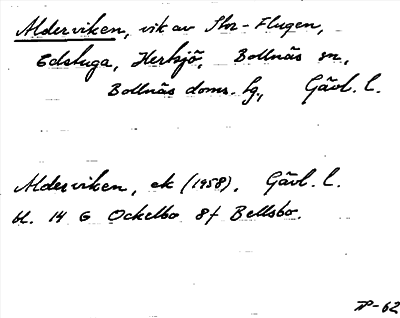 Alderviken, vik av Stor-Flugen,
Edstuga, Herksjö, Bollnäs sn,
Bollnäs doms. hg, Gävl. l.
Alderviken, ek (1958), Gävl. l.
bl. 14 G Ockelbo 8f Bellsbo.
-62